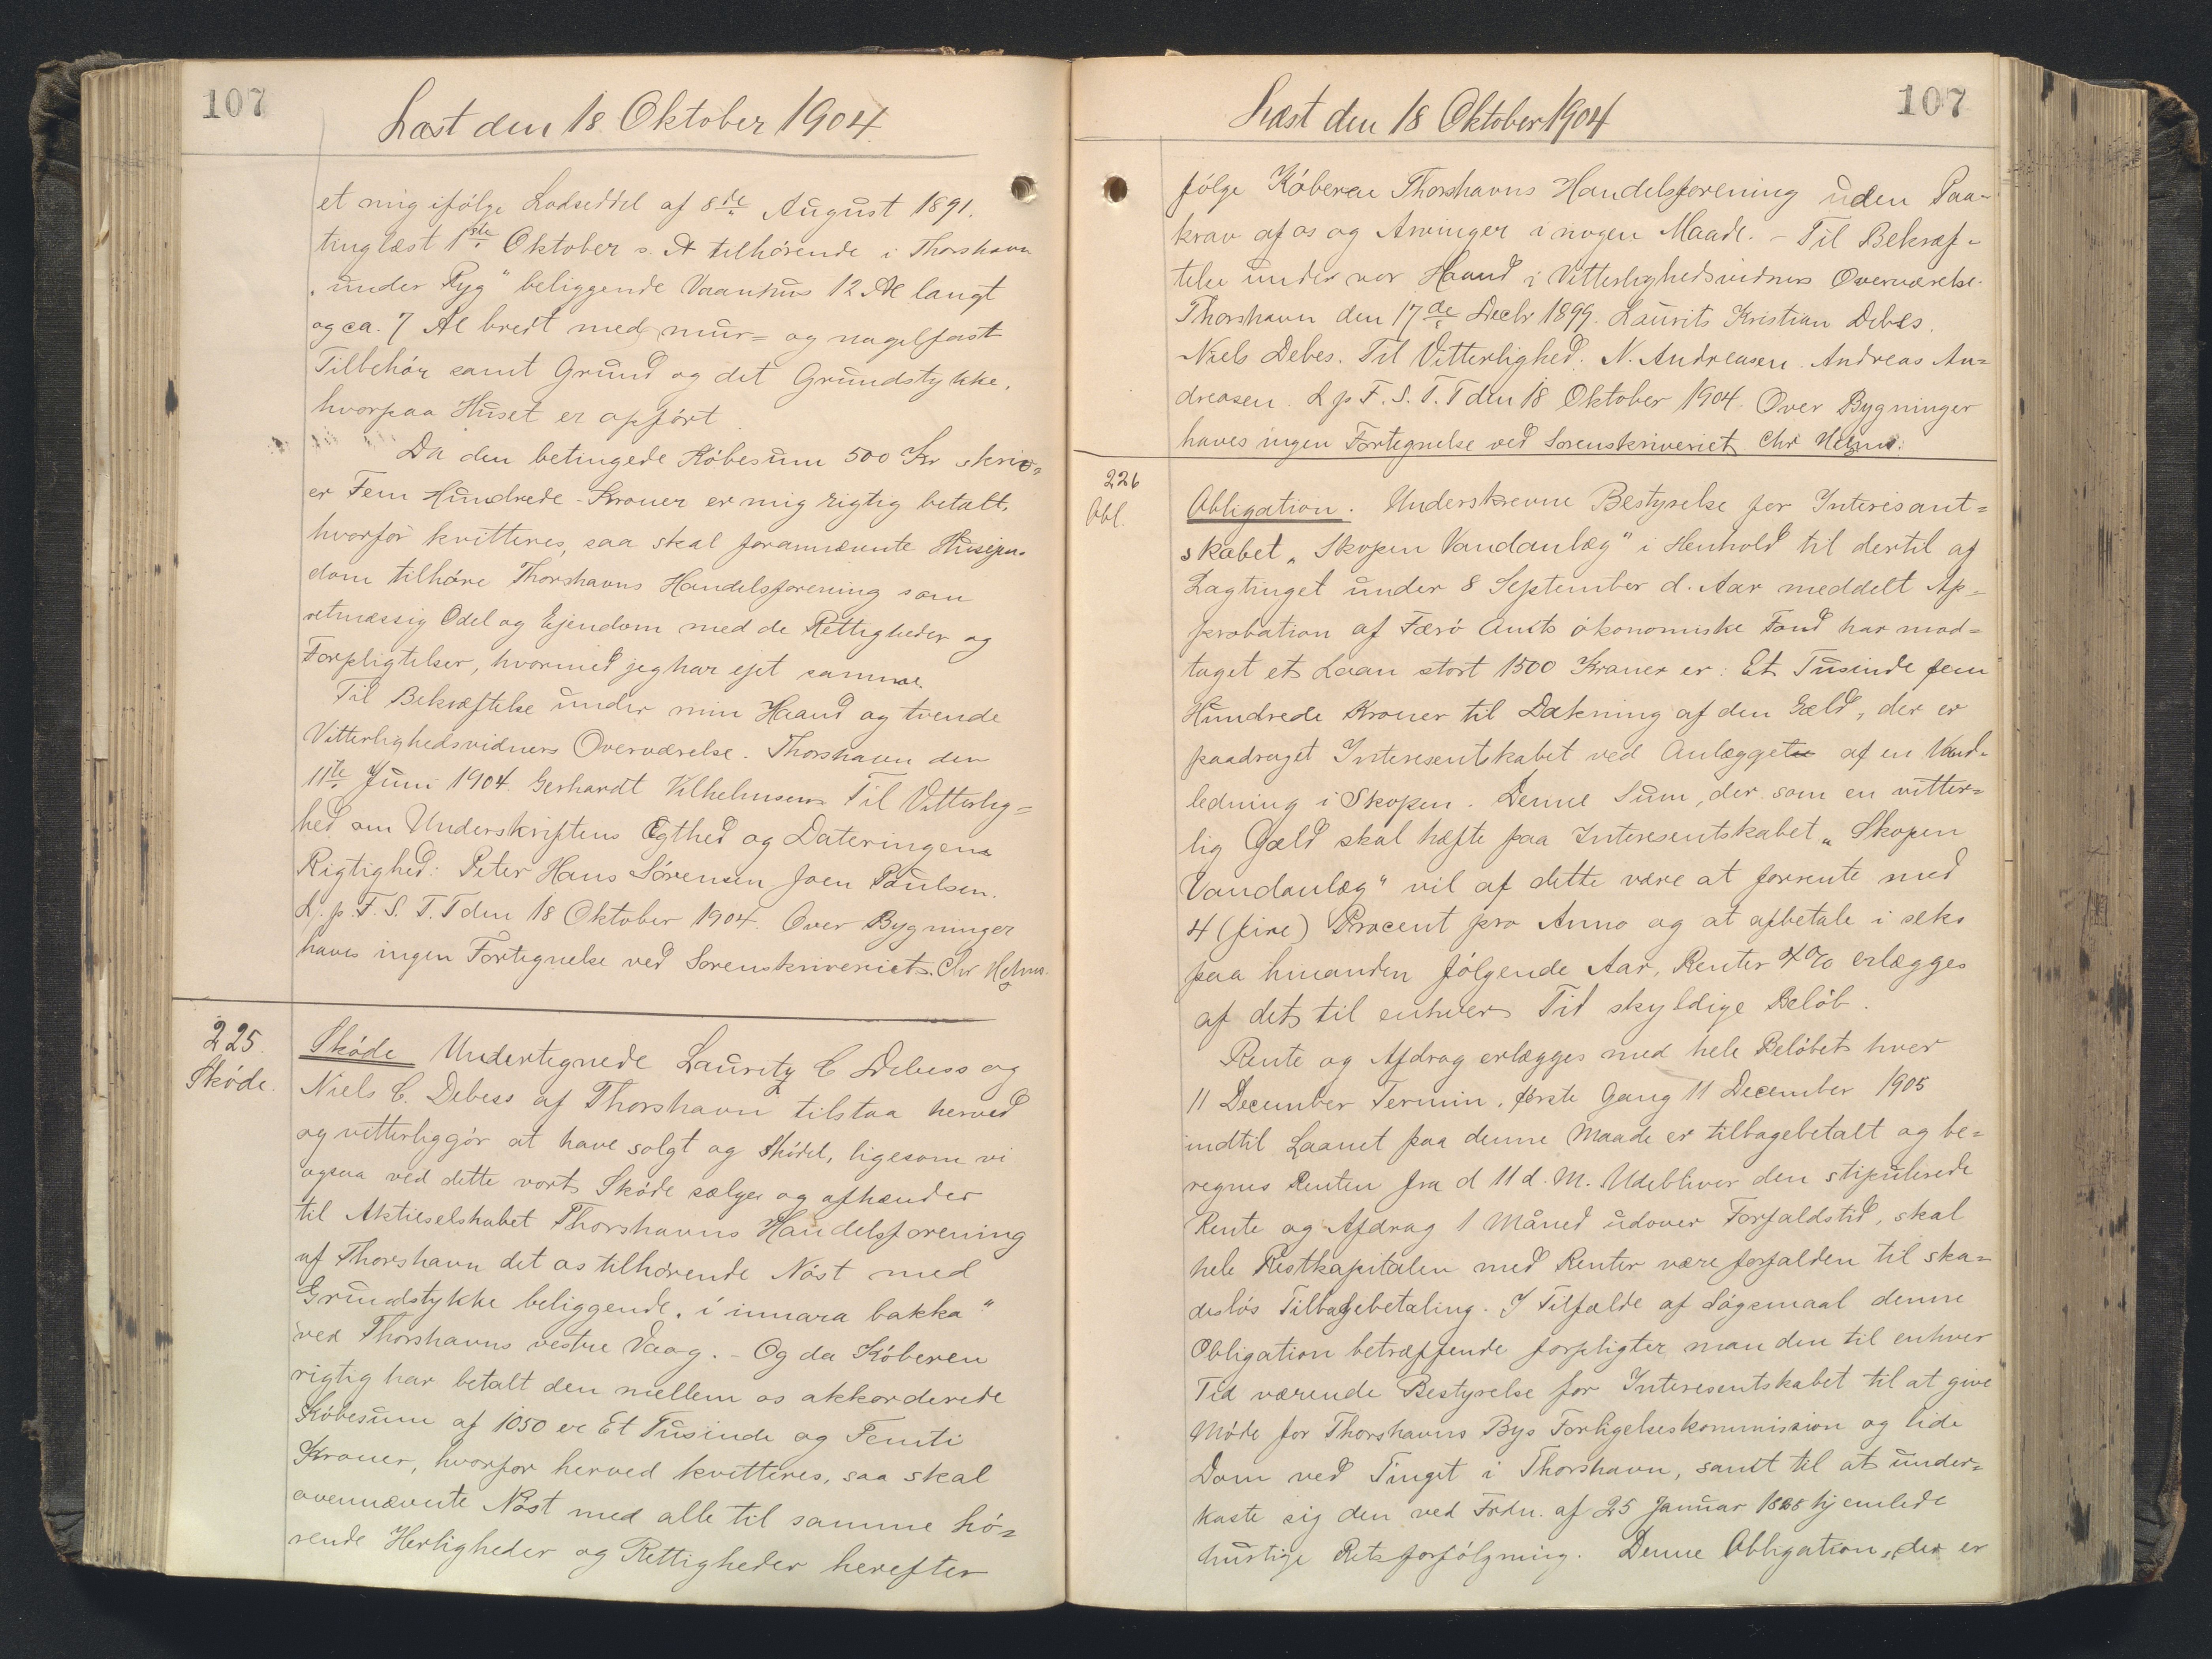 107
Læst den 18 Oktober 1904.
et mig ifølge Lodseddel af 8de August 1891.
tinglæst 1ste Oktober s. A tilhørende i Thorshavn
"under Ryg" beliggende Vaanhus 12 Al langt
og ca. 7 Al bredt med mur= og nagelfast
Tilbehør samt Grund og det Grundstykke,
hvorpaa Huset er opført
Da den betingede Købesum 500 Kr skriv=
er Fem Hundrede Kroner er mig rigtig betalt,
hvorfor kvitteres, saa skal forannævnte Husejen=
dom tilhøre Thorshavns Handelsforening som
retmæssig Odel og Ejendom med de Rettigheder og
Forpligtelser, hvormed jeg har ejet samme.
Til Bekræftelse under min Haand og tvende
Vitterlighedsvidners Overværelse. Thorshavn den
11te Juni 1904. Gerhardt Vilhelmsen Til Vitterlig=
hed om Underskriftens Ægthed og Dateringens
Rigtighed: Peter Hans Sørensen Joen Poulsen.
L. p. F. S. T. T den 18 Oktober 1904. Over Bygninger
haves ingen Fortegnelse ved Sorenskriveriet. Chr
225.
Skøde.
Skøde Undertegnede Lauritz C Debess og
Niels C. Debess af Thorshavn tilstaa herved
og vitterliggør at have solgt og skødet, ligesom vi
ogsaa ved dette vort Skøde sælger og afhænder
til Aktieselskabet Thorshavns Handelsforening
af Thorshavn det os tilhørende Nøst med
Grundstykke beliggende "i innara bakka"
ved Thorshavns vestre Vaag. - Og da Køberen
rigtig har betalt den mellem os akkorderede
Købesum af 1050 er Et Tusinde og Femti
Kroner, hvorfor herved kvitteres, saa skal
ovennævnte Nøst med alle til samme hø=
rende Herligheder og Rettigheder herefter
107
Læst den 18 Oktober 1904
følge Køberen Thorshavns Handelsforening uden Paa-
krav af os og Arvinger i nogen Maade. - Til Bekræf-
telse under vor Haand i Vitterlighedsvidners Overværelse.
Thorshavn den 17de Decbr 1899. Laurits Kristian Debes.
Niels Debes. Til Vitterlighed: N. Andreasen. Andreas An=
dreasen. L p F. S. T. T den 18 Oktober 1904. Over Bygninger
haves ingen Fortegnelse ved Sorenskriveriet Chr
226
Obl.
Obligation. Underskrevne Bestyrelse for Interesant=
skabet "Skopen Vandanlæg" i Henhold til dertil af
Lagtinget under 8 September d. Aar meddelt Ap=
probation af Færø Amts økonomiske Fond har mod=
taget et Laan stort 1500 Kroner er: Et Tusinde fem
Hundrede Kroner til Dækning af den Gæld, der er
paadraget Interesentskabet ved Anlægget af en Vand=
ledning i Skopen. Denne Sum, der som en vitter=
lig Gæld skal hæfte paa Interesentskabet "Skopen
Vandanlæg" vil af dette være at forrente med
4 (fire) Procent pro Anno og at afbetale i seks
paa hinanden følgende Aar, Renter 4% erlægges
af det til enhver Tid skyldige Beløb.
Rente og Afdrag erlægges med hele Beløbet hver
11 December Termin, første Gang 11 December 1905
indtil Laanet paa denne Maade er tilbagebetalt og be=
regnes Renten fra d 11 d. M. Udebliver den stipulerede
Rente og Afdrag 1 Måned udover Forfaldstid, skal
hele Restkapitalen med Renter være forfalden til ska=
desløs Tilbagebetaling. I Tilfælde af Søgsmaal denne
Obligation betræffende forpligter man den til enhver
Tid værende Bestyrelse for Interesentskabet til at give
Møde for Thorshavns Bys Forligelseskommission og lide
Dom ved Tinget i Thorshavn, samt til at under=
kaste sig den ved Frdn. af 25 Januar 1828 hjemlede
hurtige Retsforfølgning. Denne Obligation, der er